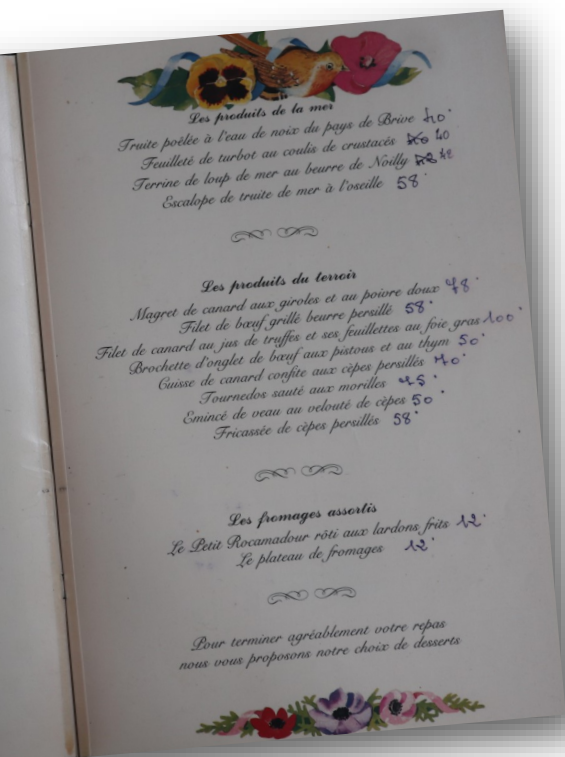 Les produits de la mer
Truite poêlée à l'eau de noix du pays de Brive 40
Feuilleté de turbot au coulis de crustacés 40
Terrine de loup de mer au beurre de Noilly 42
Escalope de truite de mer à l'oseille 58
Les produits du terroir
Magret de canard aux giroles et au poivre doux 48
Filet de bœuf grillé beurre persillé 58
Filet de canard au jus de truffes et ses feuillettes au foie gras 100
Brochette d'onglet de bœuf aux pistous et au thym 50
Cuisse de canard confite aux cèpes persillés
Tournedos sauté aux morilles
Emincé de veau au velouté de cèpes 50
Fricassée de cèpes persillés 58
Les fromages assortis
Le Petit Rocamadour rôti aux lardons frits 12
Le plateau de fromages 12
Pour terminer agréablement votre repas
nous vous proposons notre choix de desserts